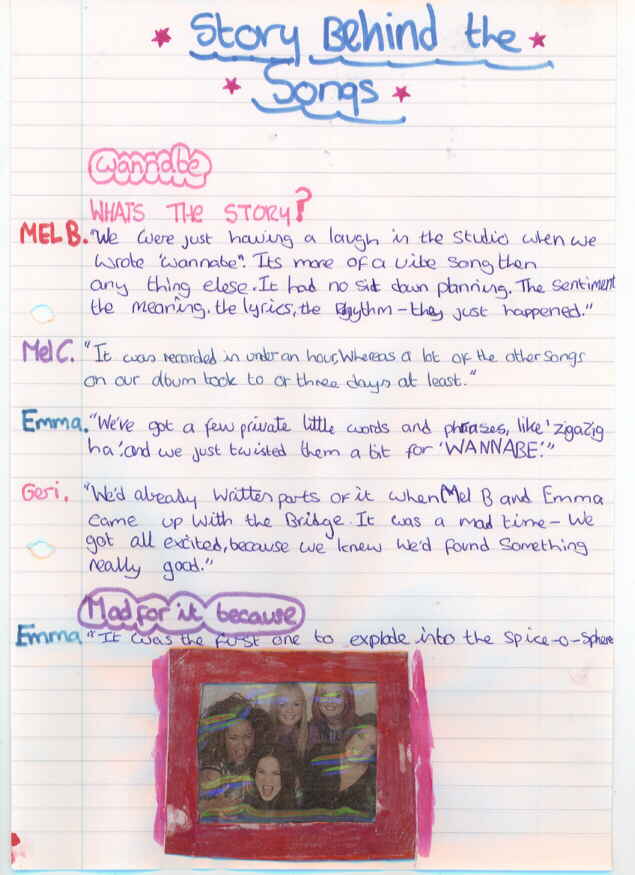 Story Behind the
Songs
wannabe
WHATS THE STORY?
MEL B. "We were just having a laugh in the studio when we
wrote 'wannabe'. Its more of a vibe song then
any thing elese. It had no sit down planning. The sentiment
the meaning. the lyrics, the Rhythm - they just happened."
Mel C. "It was recorded in under an hour, Whereas a lot of the other songs
on our album took to or three days at least."
Emma. "We've got a few private little words and phrases, like 'zigazig
ha'. and we just twisted them a bit for 'WANNABE'."
Geri. "We'd already written parts of it when Mel B and Emma
came up with the Bridge. It was a mad time - We
got all excited, because we knew we'd found something
really good."
Mad for it because
Emma "It was the first one to explode into the Spice-o-Sphere